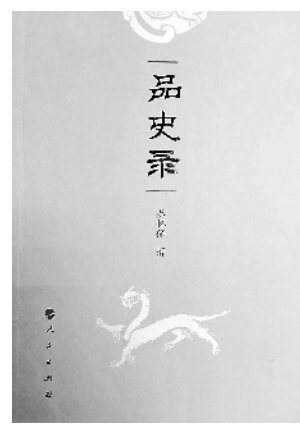 品史录
人民出版社